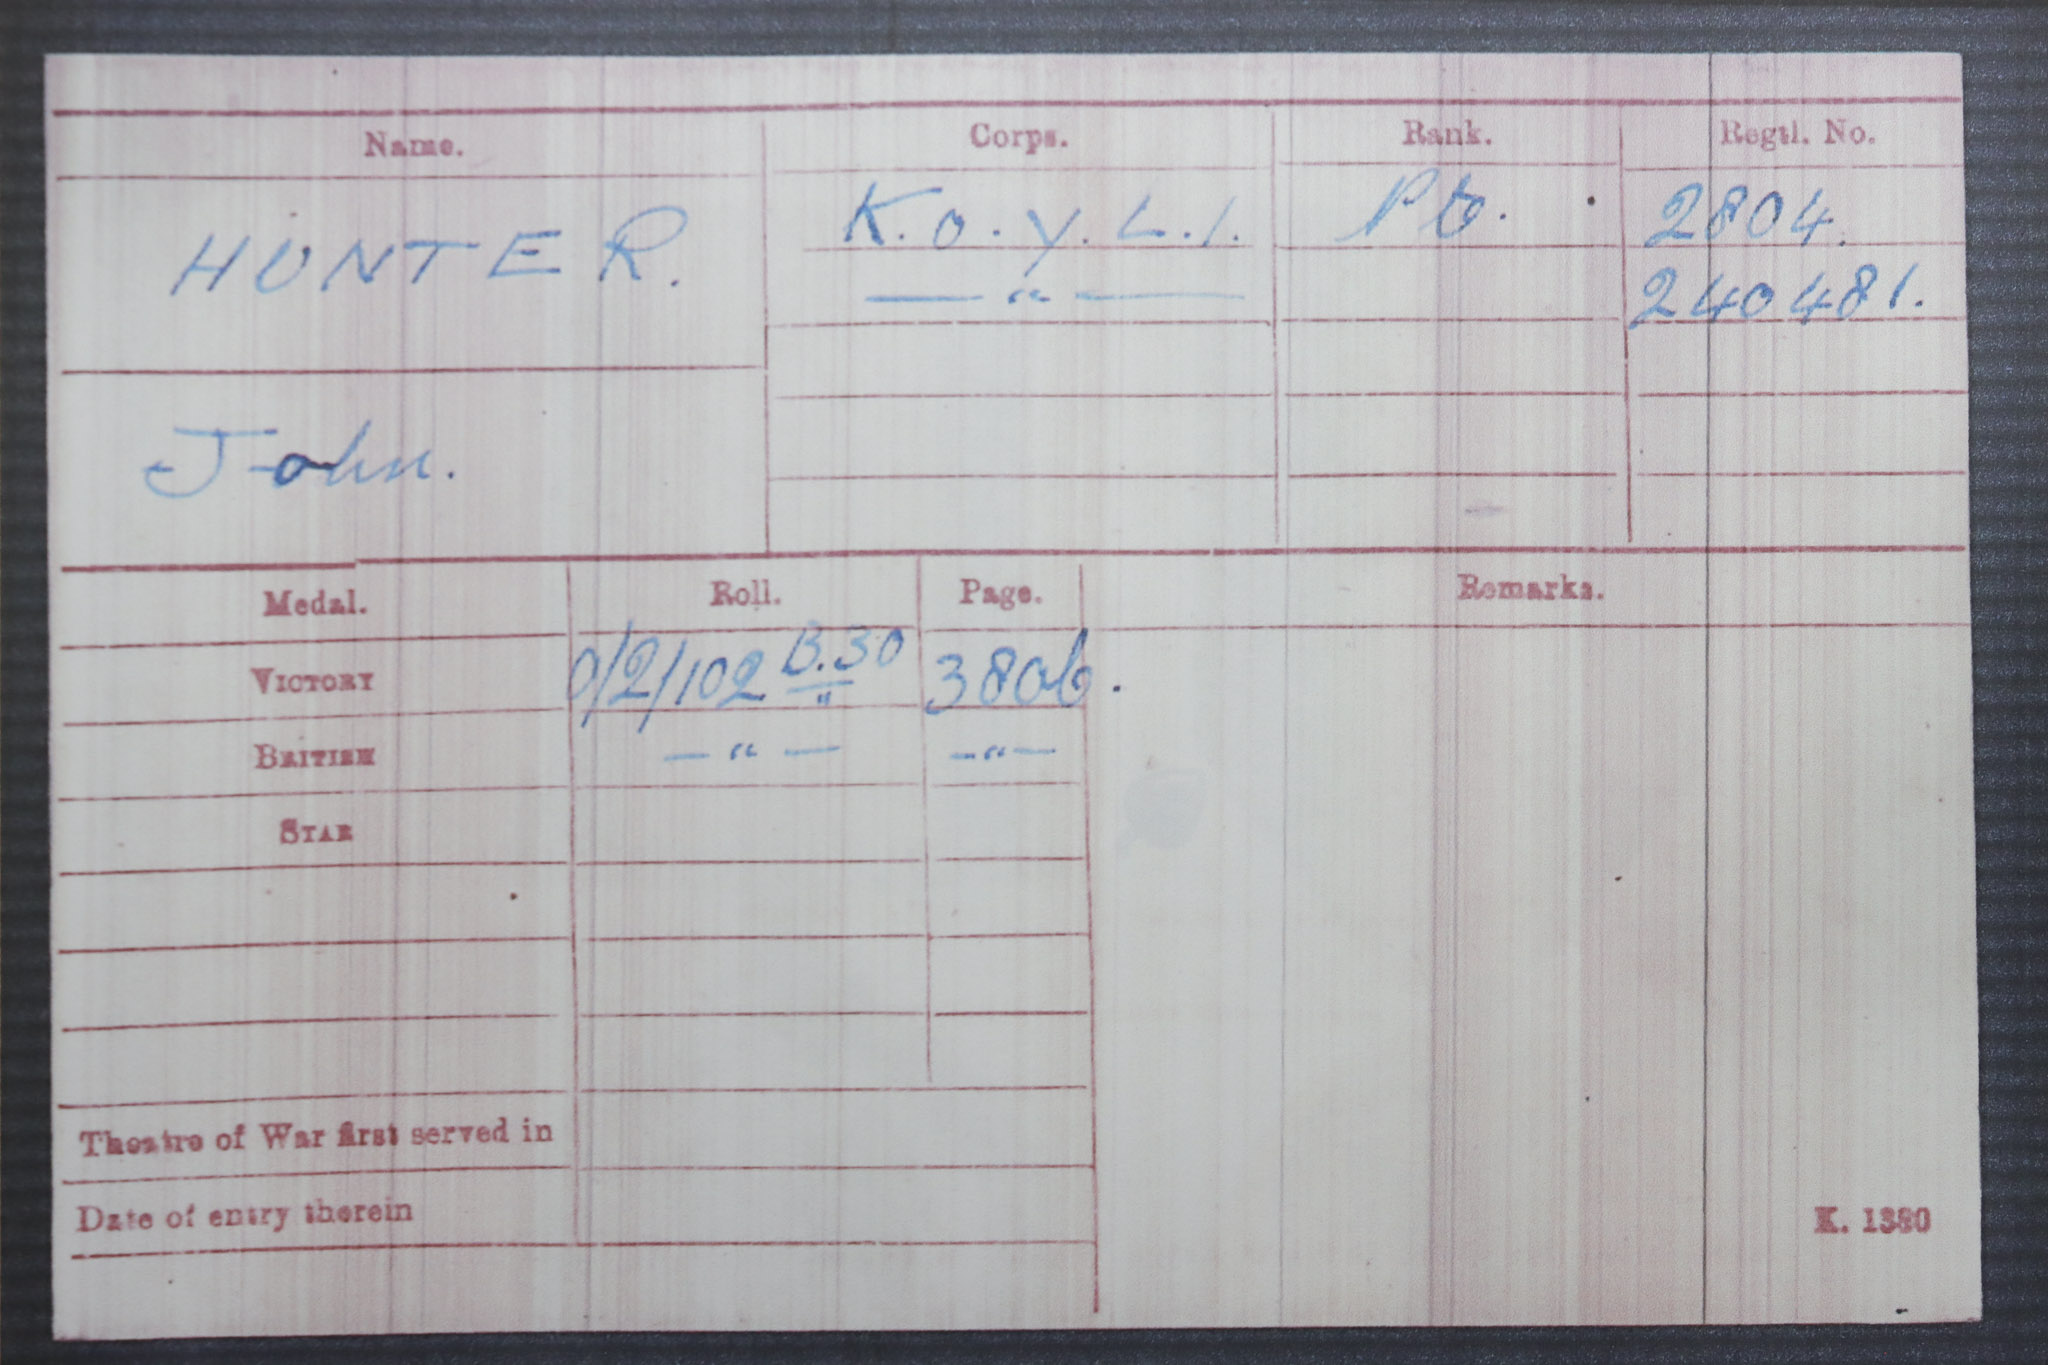 Name. Corps. Rank. Regtl. No.
HUNTER. K.O.Y.L.I. Pte. 2804.
— " — 240481.
John.
Medal. Roll. Page. Remarks.
VICTORY O/2/102 B.30 3806.
"
BRITISH — " — — " —
STAR
Theatre of War first served in
Date of entry therein
K. 1380